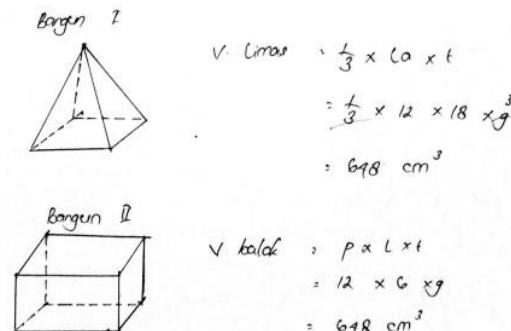 Bangun I
V. Limas = 1/3 × La × t
= 1/3 × 12 × 18 × 9 3
= 648 cm³
Bangun II
V balok = P × L × t
= 12 × 6 × 9
= 648 cm³